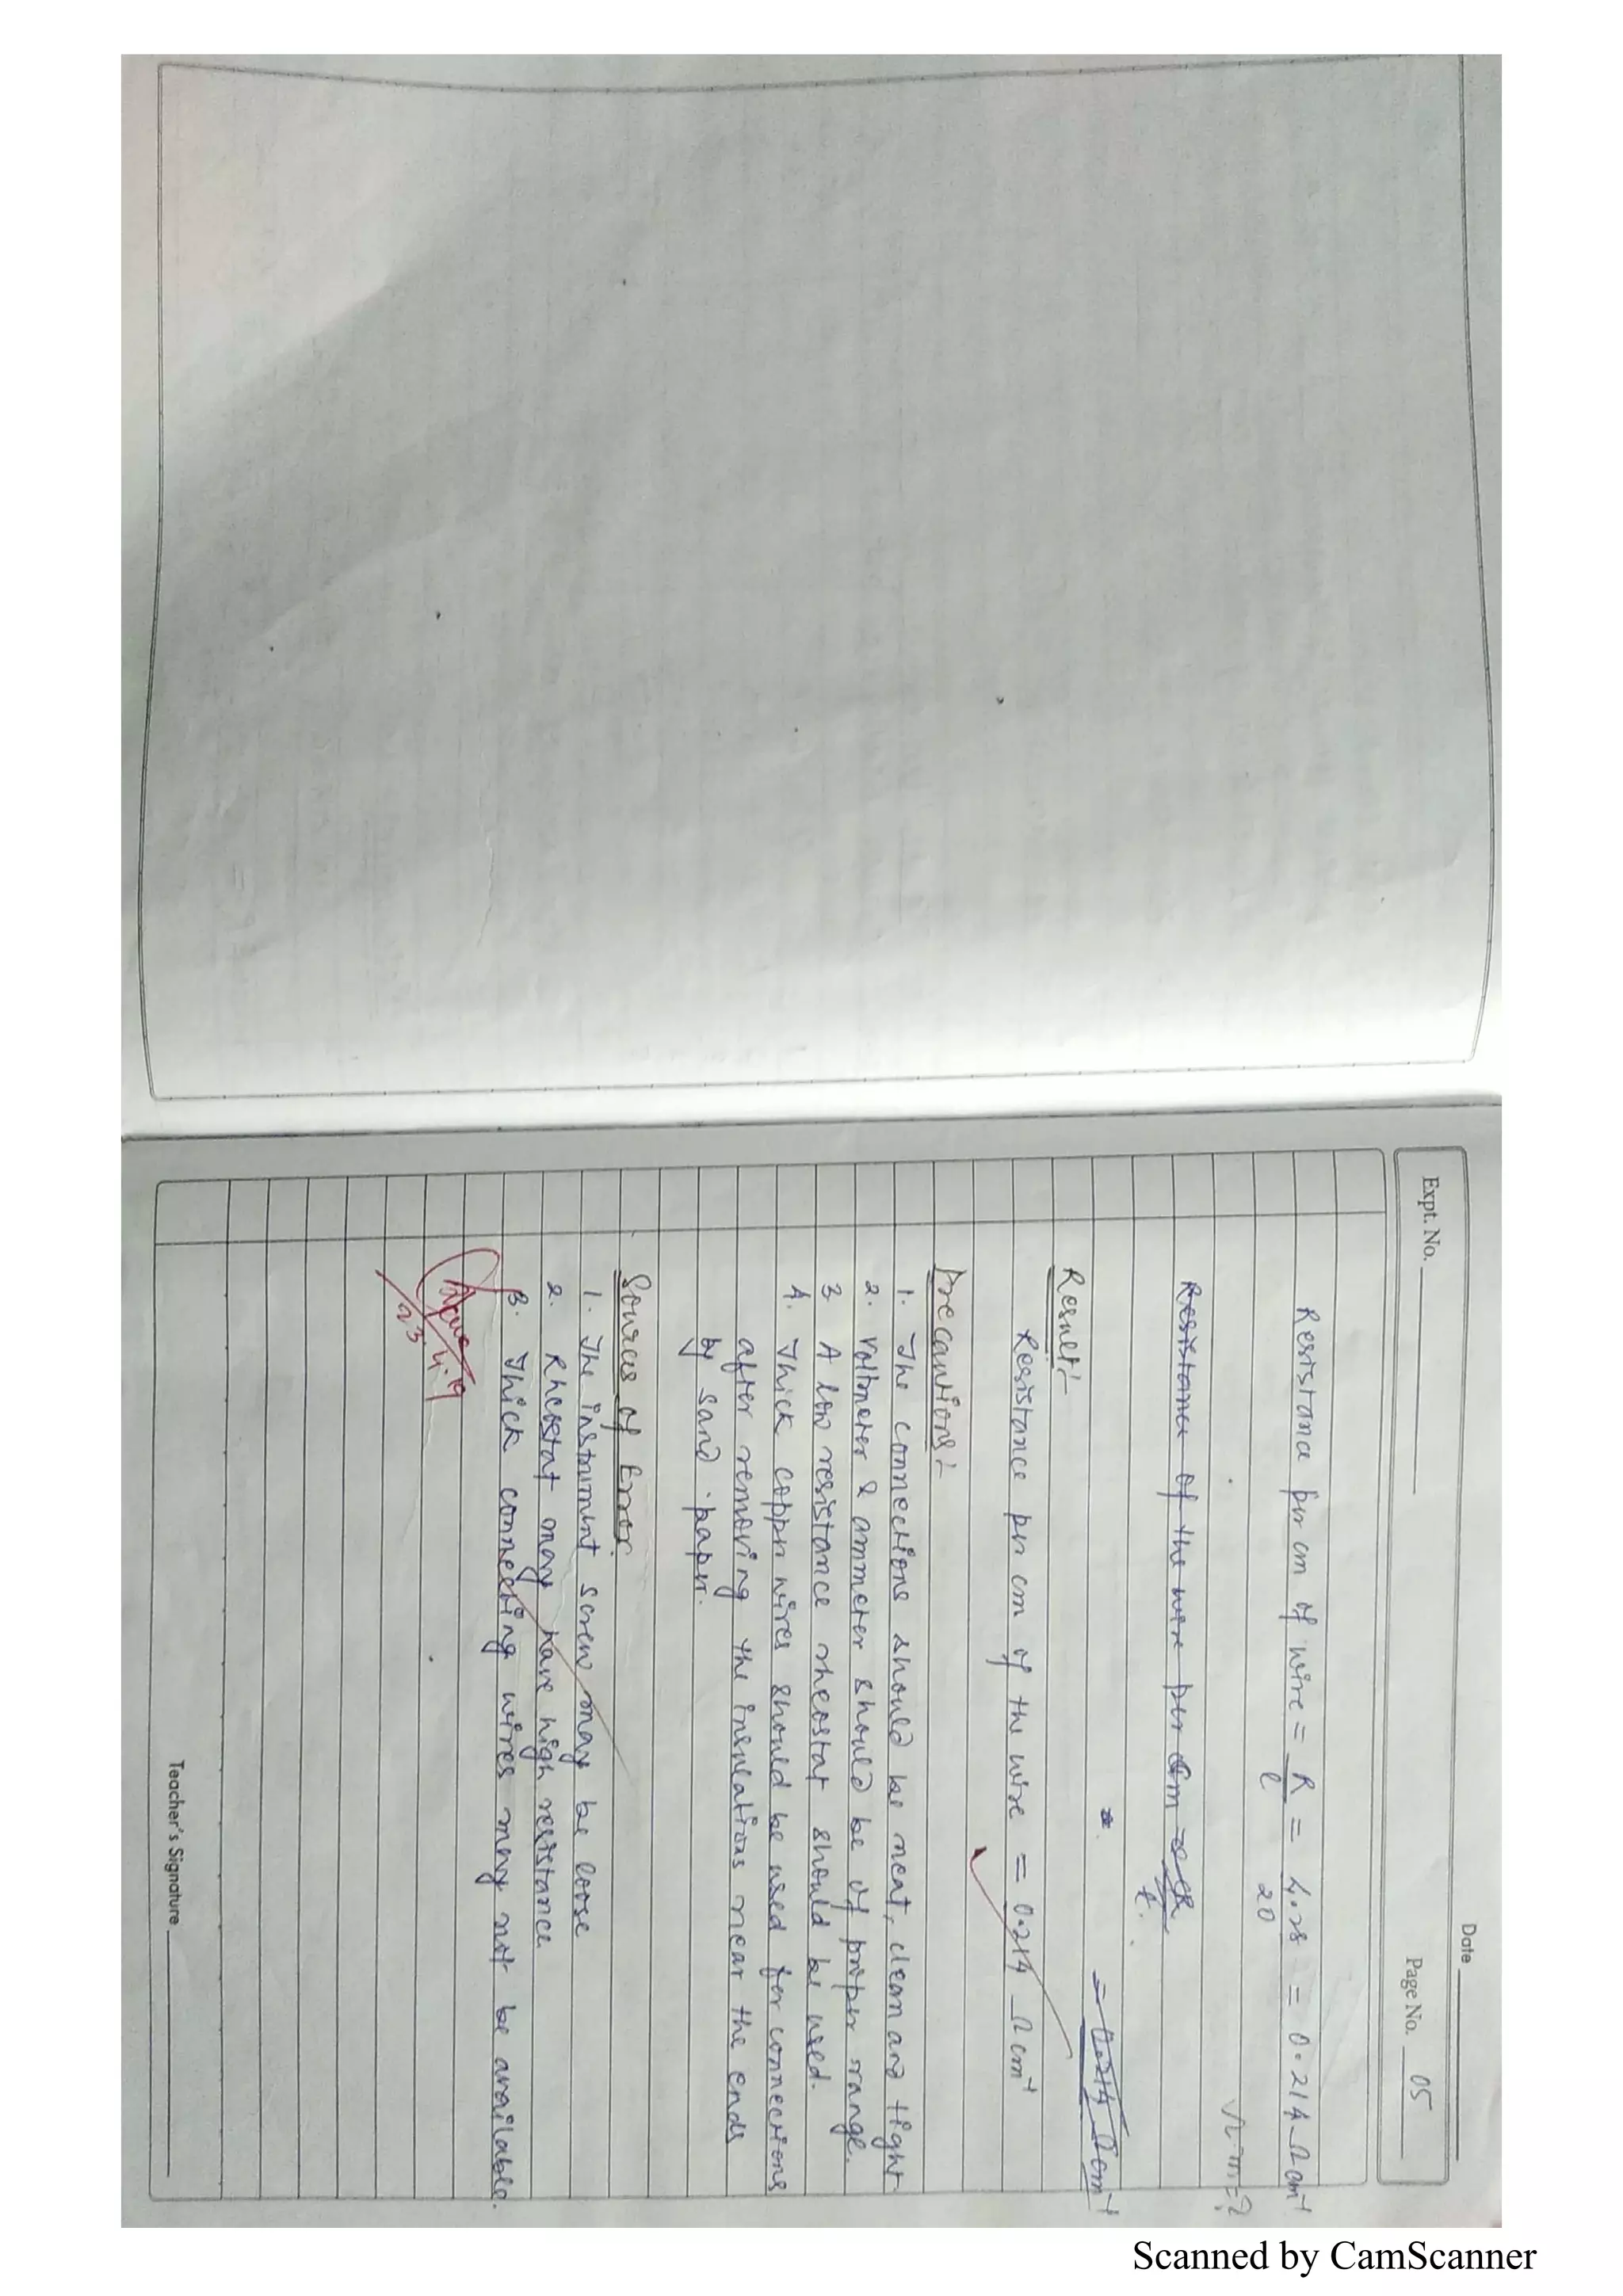 Date
Expt. No.
Page No. 05
Resistance per cm of wire = R/l = 4.28/20 = 0.214 Ω cm⁻¹
Resistance of the wire per cm = R/l
= 0.214 Ω cm⁻¹
Result:-
Resistance per cm of the wire = 0.214 Ω cm⁻¹
Precautions:-
1. The connections should be neat, clean and tight.
2. Voltmeter & ammeter should be of proper range.
3 A low resistance rheostat should be used.
4. Thick copper wires should be used for connections
after removing the insulations near the ends
by sand paper.
Sources of Error.
1. The instrument screw may be loose
2. Rheostat may have high resistance
3. Thick connecting wires may not be available.
23.4.19
Teacher's Signature
Scanned by CamScanner